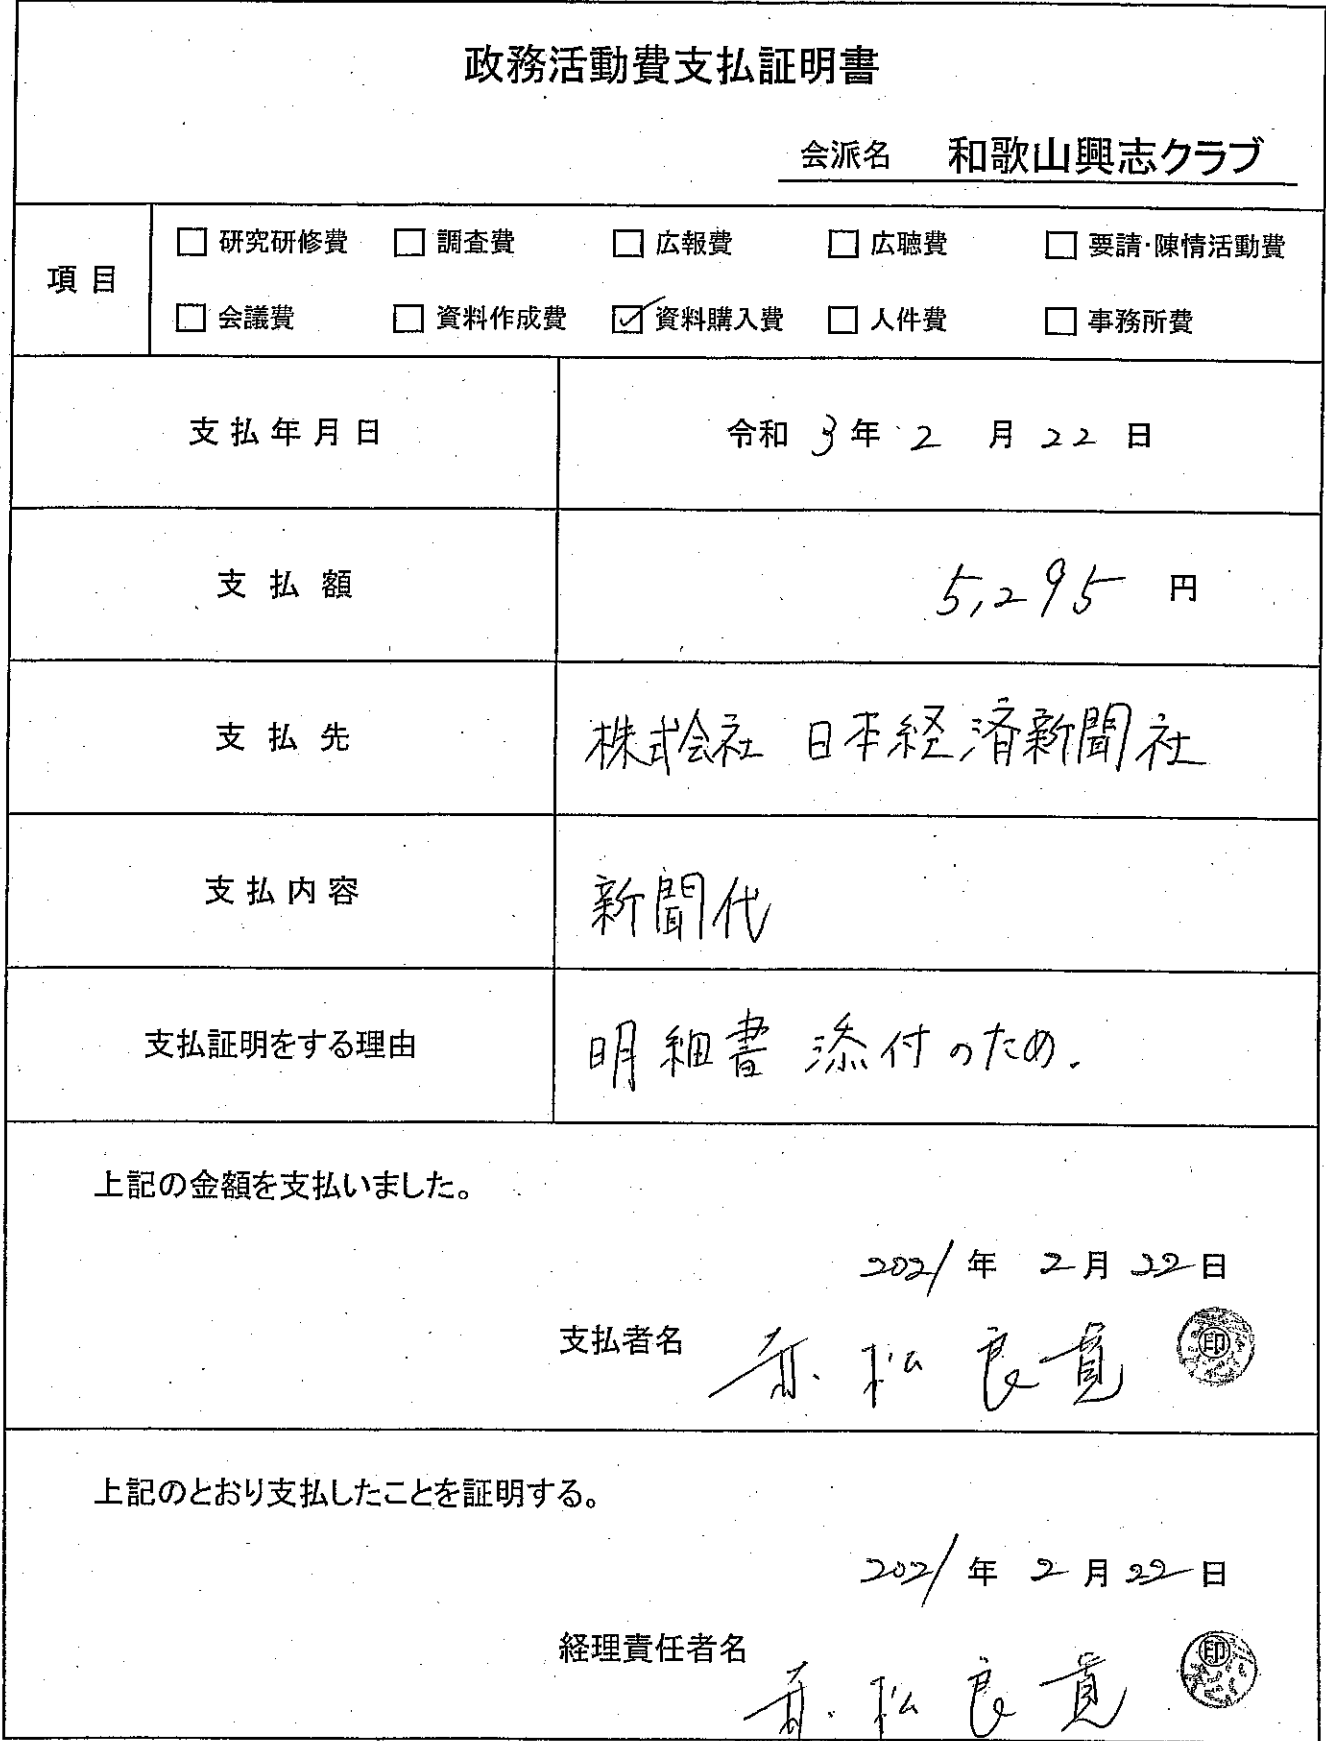 政務活動費支払証明書
会派名 和歌山興志クラブ
項目
□ 研究研修費 □ 調査費 □ 広報費 □ 広聴費 □ 要請・陳情活動費
□ 会議費 □ 資料作成費 ☑ 資料購入費 □ 人件費 □ 事務所費
支払年月日 令和 3年 2 月 22 日
支払額 5,295 円
支払先 株式会社 日本経済新聞社
支払内容 新聞代
支払証明をする理由 明細書 添付のため.
上記の金額を支払いました。
2021年 2月 22日
支払者名 赤松良寛 印
上記のとおり支払したことを証明する。
2021年 2月 22日
経理責任者名 赤松良寛 印